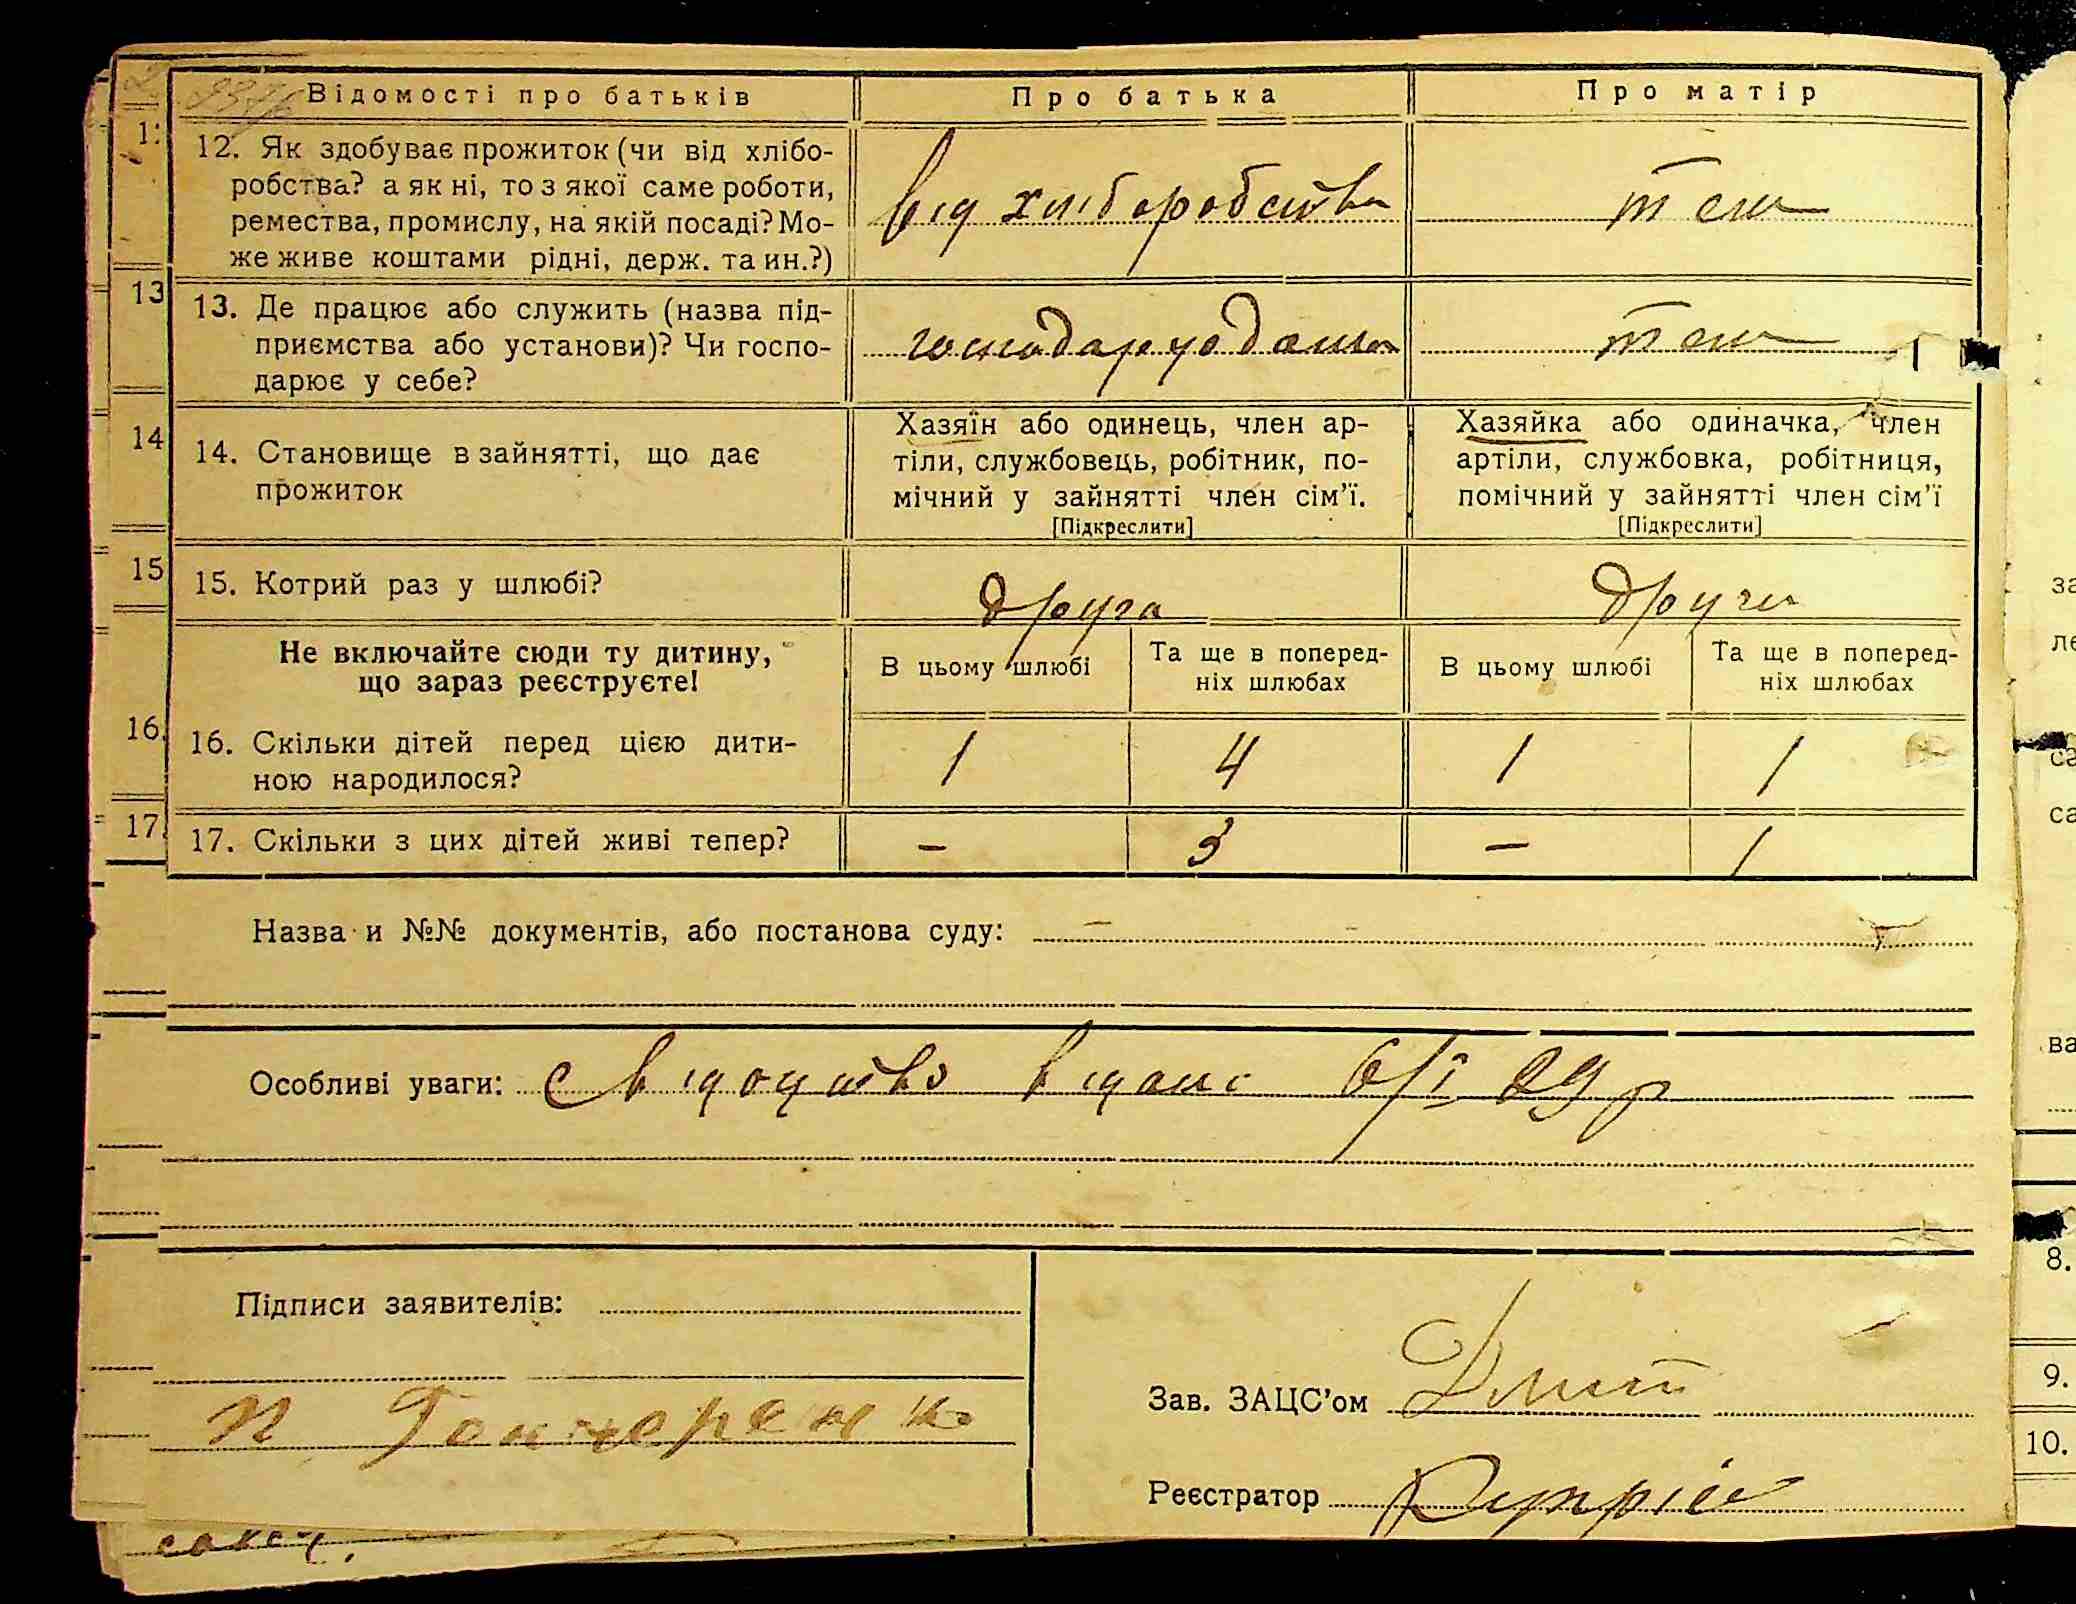 Відомості про батьків
Про батька
Про матір
12. Як здобуває прожиток (чи від хлібо-
робства? а як ні, то з якої саме роботи,
ремества, промислу, на якій посаді? Мо-
же живе коштами рідні, держ. та ин.?)
від хліборобства
теж
13. Де працює або служить (назва під-
приємства або установи)? Чи госпо-
дарює у себе?
господарує дома
теж
14. Становище в зайнятті, що дає
прожиток
Хазяїн або одинець, член ар-
тіли, службовець, робітник, по-
мічний у зайнятті член сім'ї.
[Підкреслити]
Хазяйка або одиначка, член
артіли, службовка, робітниця,
помічний у зайнятті член сім'ї
[Підкреслити]
15. Котрий раз у шлюбі?
друга
друга
Не включайте сюди ту дитину,
що зараз реєструєте!
В цьому шлюбі
Та ще в поперед-
ніх шлюбах
В цьому шлюбі
Та ще в поперед-
ніх шлюбах
16. Скільки дітей перед цією дити-
ною народилося?
1 4 1 1
17. Скільки з цих дітей живі тепер?
– 3 – 1
Назва и №№ документів, або постанова суду: –
Особливі уваги: свідоцтво видане 6/I 29 р
Підписи заявителів:
П Гончаренко
Зав. ЗАЦС'ом
Реєстратор
13
14
15
16.
17.
8.
9.
10.